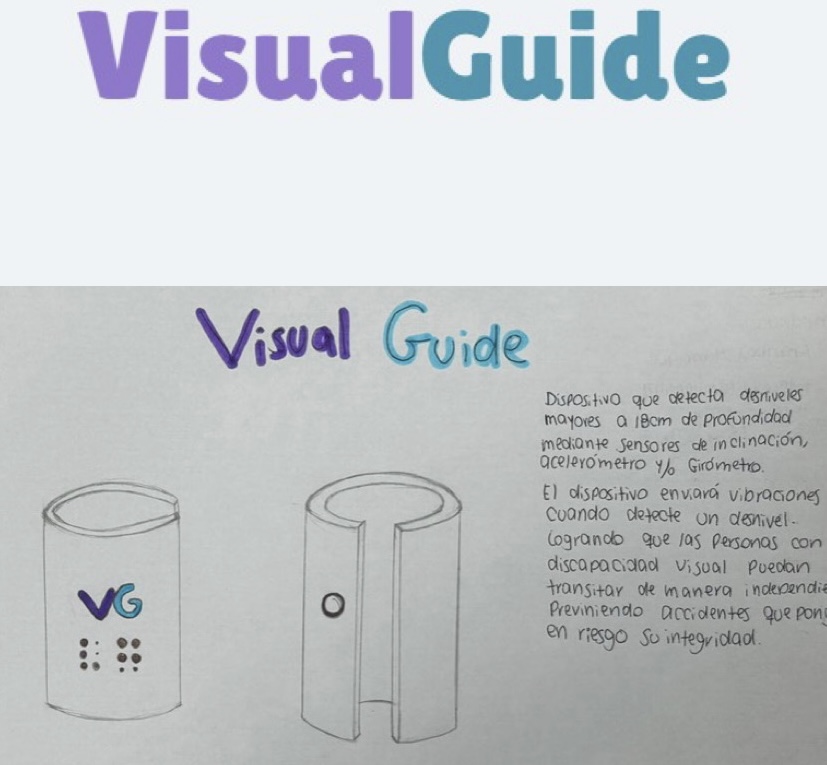 VisualGuide
Visual Guide
Dispositivo que detecta desniveles
mayores a 18cm de profundidad
mediante sensores de inclinación,
acelerómetro y/o Girómetro.
El dispositivo enviará vibraciones
cuando detecte un desnivel.
Logrando que las personas con
discapacidad visual puedan
transitar de manera independie
Previniendo accidentes que pong
en riesgo su integridad.
VG